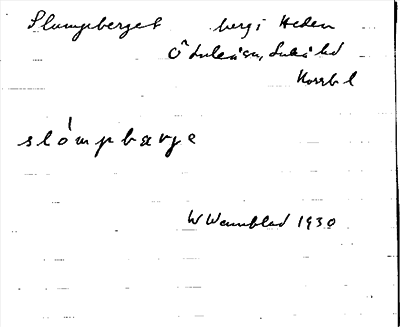 Slumpberget berg i Heden
Ö Luleåsn, Luleå ld
Norrb l
slómpbærje
W Wennblad 1930